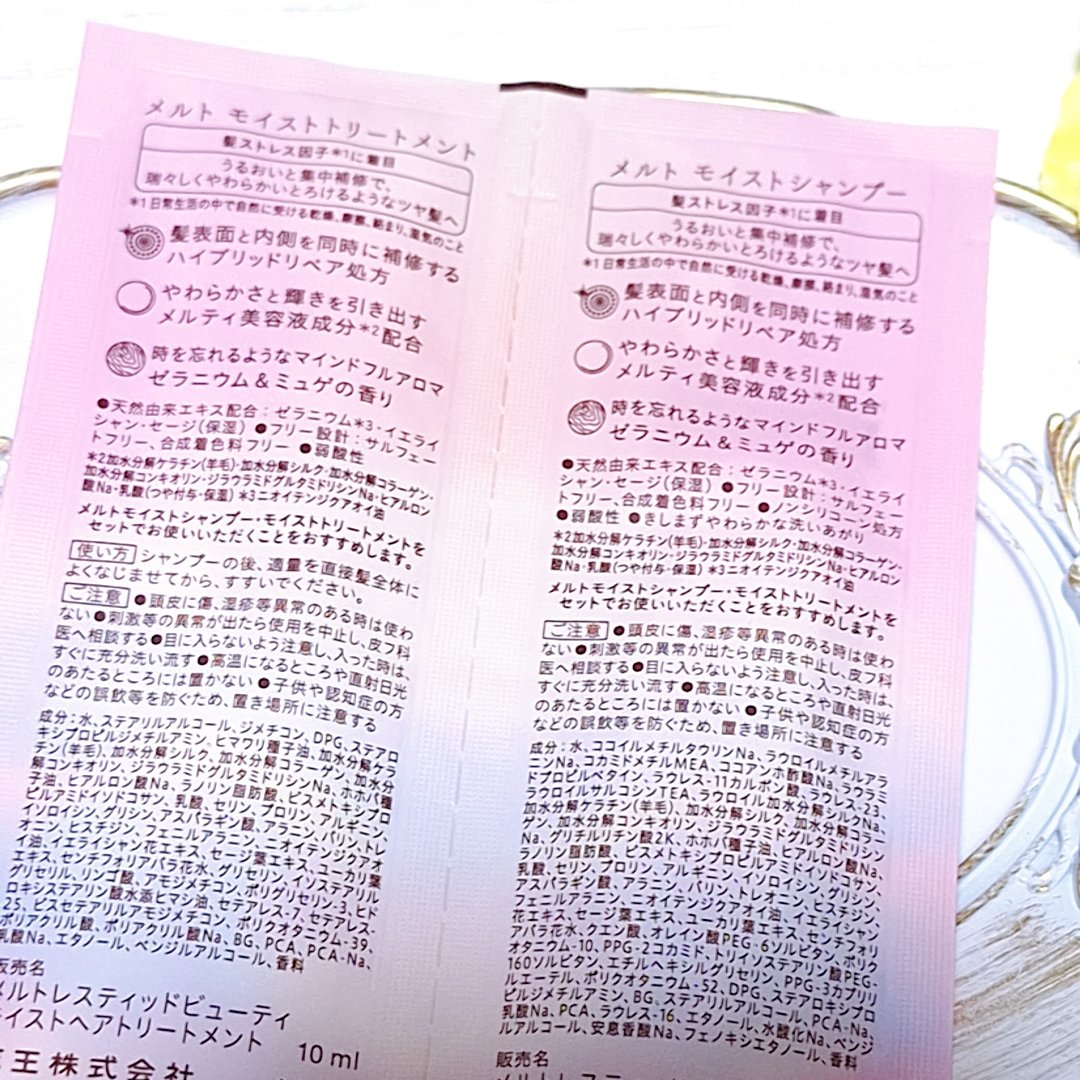 メルト モイストトリートメント
髪ストレス因子*1に着目
うるおいと集中補修で、
瑞々しくやわらかいとろけるようなツヤ髪へ
*1 日常生活の中で自然に受ける乾燥、摩擦、絡まり、湿気のこと
髪表面と内側を同時に補修する
ハイブリッドリペア処方
やわらかさと輝きを引き出す
メルティ美容液成分*2配合
時を忘れるようなマインドフルアロマ
ゼラニウム&ミュゲの香り
●天然由来エキス配合:ゼラニウム*3・イエライ
シャン・セージ(保湿) ●フリー設計:サルフェー
トフリー、合成着色料フリー ●弱酸性
*2加水分解ケラチン(羊毛)・加水分解シルク・加水分解コラーゲン・
加水分解コンキオリン・ジラウラミドグルタミドリシンNa・ヒアルロン
酸Na・乳酸(つや付与・保湿) *3ニオイテンジクアオイ油
メルトモイストシャンプー・モイストトリートメントを
セットでお使いいただくことをおすすめします。
使い方 シャンプーの後、適量を直接髪全体に
よくなじませてから、すすいでください。
ご注意 ●頭皮に傷、湿疹等異常のある時は使わ
ない●刺激等の異常が出たら使用を中止し、皮フ科
医へ相談する●目に入らないよう注意し、入った時は、
すぐに充分洗い流す●高温になるところや直射日光
のあたるところには置かない ●子供や認知症の方
などの誤飲等を防ぐため、置き場所に注意する
成分:水、ステアリルアルコール、ジメチコン、DPG、ステアロ
キシプロピルジメチルアミン、ヒマワリ種子油、加水分解ケラ
チン(羊毛)、加水分解シルク、加水分解コラーゲン、加水分
解コンキオリン、ジラウラミドグルタミドリシンNa、ホホバ種
子油、ヒアルロン酸Na、ラノリン脂肪酸、ビスメトキシプロ
ピルアミドイソドコサン、乳酸、セリン、プロリン、アルギニン、
イソロイシン、グリシン、アスパラギン酸、アラニン、バリン、トレ
オニン、ヒスチジン、フェニルアラニン、ニオイテンジクアオ
イ油、イエライシャン花エキス、セージ葉エキス、ユーカリ葉
エキス、センチフォリアバラ花水、グリセリン、イソステアリル
グリセリル、リンゴ酸、アモジメチコン、ポリグリセリル-3、ヒド
ロキシステアリン酸水添ヒマシ油、セテアレス-7、セテアレス-
25、ビスセテアリルアモジメチコン、ポリクオタニウム-39、
ポリアクリル酸、ポリアクリル酸Na、BG、PCA、PCA-Na、
乳酸Na、エタノール、ベンジルアルコール、香料
販売名
メルトレスティッドビューティ
モイストヘアトリートメント
10 ml
王株式会社
メルト モイストシャンプー
髪ストレス因子*1に着目
うるおいと集中補修で、
瑞々しくやわらかいとろけるようなツヤ髪へ
*1 日常生活の中で自然に受ける乾燥、摩擦、絡まり、湿気のこと
髪表面と内側を同時に補修する
ハイブリッドリペア処方
やわらかさと輝きを引き出す
メルティ美容液成分*2配合
時を忘れるようなマインドフルアロマ
ゼラニウム&ミュゲの香り
●天然由来エキス配合:ゼラニウム*3・イエライ
シャン・セージ(保湿) ●フリー設計:サルフェー
トフリー、合成着色料フリー ●ノンシリコーン処方
●弱酸性 ●きしまずやわらかな洗いあがり
*2加水分解ケラチン(羊毛)・加水分解シルク・加水分解コラーゲン・
加水分解コンキオリン・ジラウラミドグルタミドリシンNa・ヒアルロン
酸Na・乳酸(つや付与・保湿) *3ニオイテンジクアオイ油
メルトモイストシャンプー・モイストトリートメントを
セットでお使いいただくことをおすすめします。
ご注意 ●頭皮に傷、湿疹等異常のある時は使わ
ない●刺激等の異常が出たら使用を中止し、皮フ科
医へ相談する●目に入らないよう注意し、入った時は、
すぐに充分洗い流す●高温になるところや直射日光
のあたるところには置かない ●子供や認知症の方
などの誤飲等を防ぐため、置き場所に注意する
成分:水、ココイルメチルタウリンNa、ラウロイルメチルアラ
ニンNa、コカミドメチルMEA、ココアンホ酢酸Na、ラウラミ
ドプロピルベタイン、ラウレス-11カルボン酸、ラウレス-23、
ラウロイルサルコシンTEA、ラウロイル加水分解シルクNa、
加水分解ケラチン(羊毛)、加水分解シルク、加水分解コラー
ゲン、加水分解コンキオリン、ジラウラミドグルタミドリシン
Na、グリチルリチン酸2K、ホホバ種子油、ヒアルロン酸Na、
ラノリン脂肪酸、ビスメトキシプロピルアミドイソドコサン、
乳酸、セリン、プロリン、アルギニン、イソロイシン、グリシン、
アスパラギン酸、アラニン、バリン、トレオニン、ヒスチジン、
フェニルアラニン、ニオイテンジクアオイ油、イエライシャン
花エキス、セージ葉エキス、ユーカリ葉エキス、センチフォリ
アバラ花水、クエン酸、オレイン酸PEG-6ソルビタン、ポリク
オタニウム-10、PPG-2コカミド、トリイソステアリン酸PEG-
160ソルビタン、エチルヘキシルグリセリン、PPG-3カプリリ
ルエーテル、ポリクオタニウム-52、DPG、ステアロキシプロ
ピルジメチルアミン、BG、ステアリルアルコール、PCA-Na、
乳酸Na、PCA、ラウレス-16、エタノール、水酸化Na、ベンジ
ルアルコール、安息香酸Na、フェノキシエタノール、香料
販売名